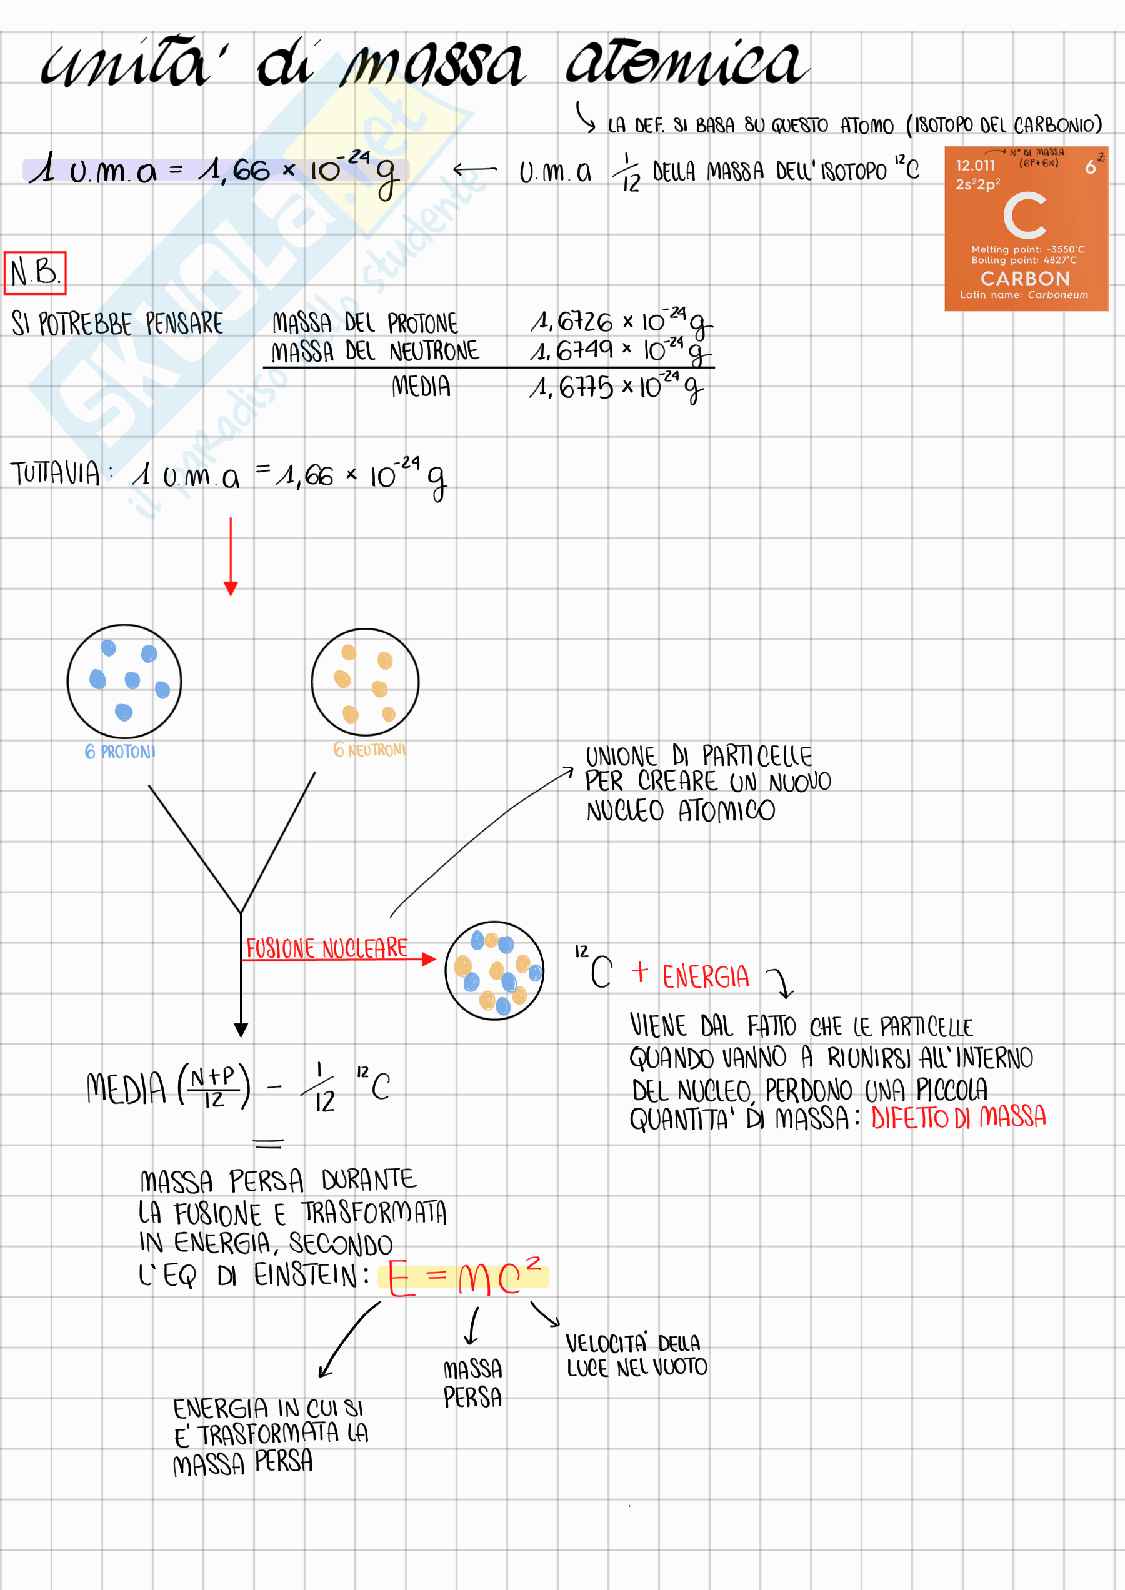 unita' di massa atomica
LA DEF. SI BASA SU QUESTO ATOMO (ISOTOPO DEL CARBONIO)
1 u.m.a = 1,66 × 10⁻²⁴ g ← u.m.a 1/12 DELLA MASSA DELL'ISOTOPO ¹²C
→ N° DI MASSA
(6P+6N)
12.011 6 Z
2s²2p²
C
Melting point: ~3550°C
Boiling point: 4827°C
CARBON
Latin name: Carboneum
N.B.
SI POTREBBE PENSARE MASSA DEL PROTONE 1,6726 × 10⁻²⁴ g
MASSA DEL NEUTRONE 1,6749 × 10⁻²⁴ g
MEDIA 1,6775 × 10⁻²⁴ g
TUTTAVIA: 1 u.m.a = 1,66 × 10⁻²⁴ g
SKUOLA.net
il paradiso dello studente
6 PROTONI
6 NEUTRONI
UNIONE DI PARTICELLE
PER CREARE UN NUOVO
NUCLEO ATOMICO
FUSIONE NUCLEARE
¹²C + ENERGIA
VIENE DAL FATTO CHE LE PARTICELLE
QUANDO VANNO A RIUNIRSI ALL'INTERNO
DEL NUCLEO, PERDONO UNA PICCOLA
QUANTITA' DI MASSA: DIFETTO DI MASSA
MEDIA (N+P/12) - 1/12 ¹²C
=
MASSA PERSA DURANTE
LA FUSIONE E TRASFORMATA
IN ENERGIA, SECONDO
L'EQ DI EINSTEIN: E = MC²
VELOCITA' DELLA
LUCE NEL VUOTO
MASSA
PERSA
ENERGIA IN CUI SI
E' TRASFORMATA LA
MASSA PERSA